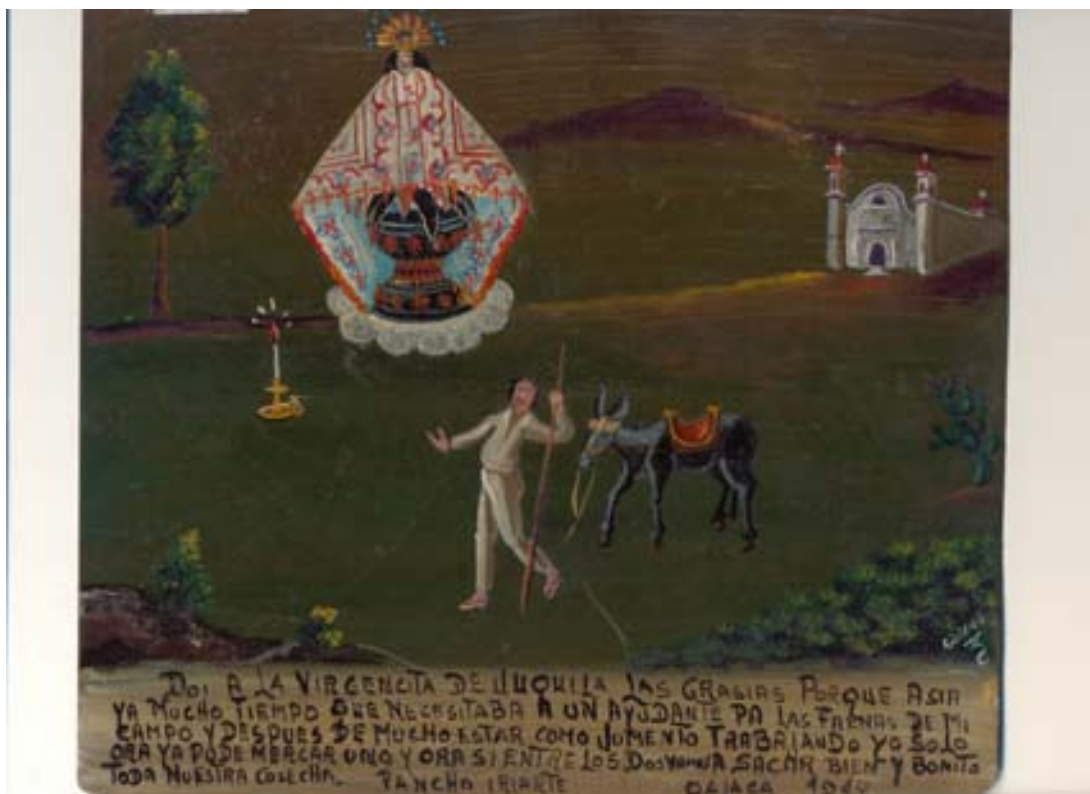 DOI A LA VIRGENCITA DE JUQUILA LAS GRASIAS PORQUE ASIA
YA MUCHO TIEMPO QUE NECESITABA A UN AYUDANTE PA LAS FAENAS DE MI
CAMPO Y DESPUES DE MUCHO ESTAR COMO JUMENTO TRABAJANDO YO SOLO
ORA YA PUDE MERCAR UNO Y ORA SI ENTRE LOS DOS VAMOS A SACAR BIEN Y BONITO
TODA NUESTRA COSECHA. PANCHO IRIARTE OAXACA